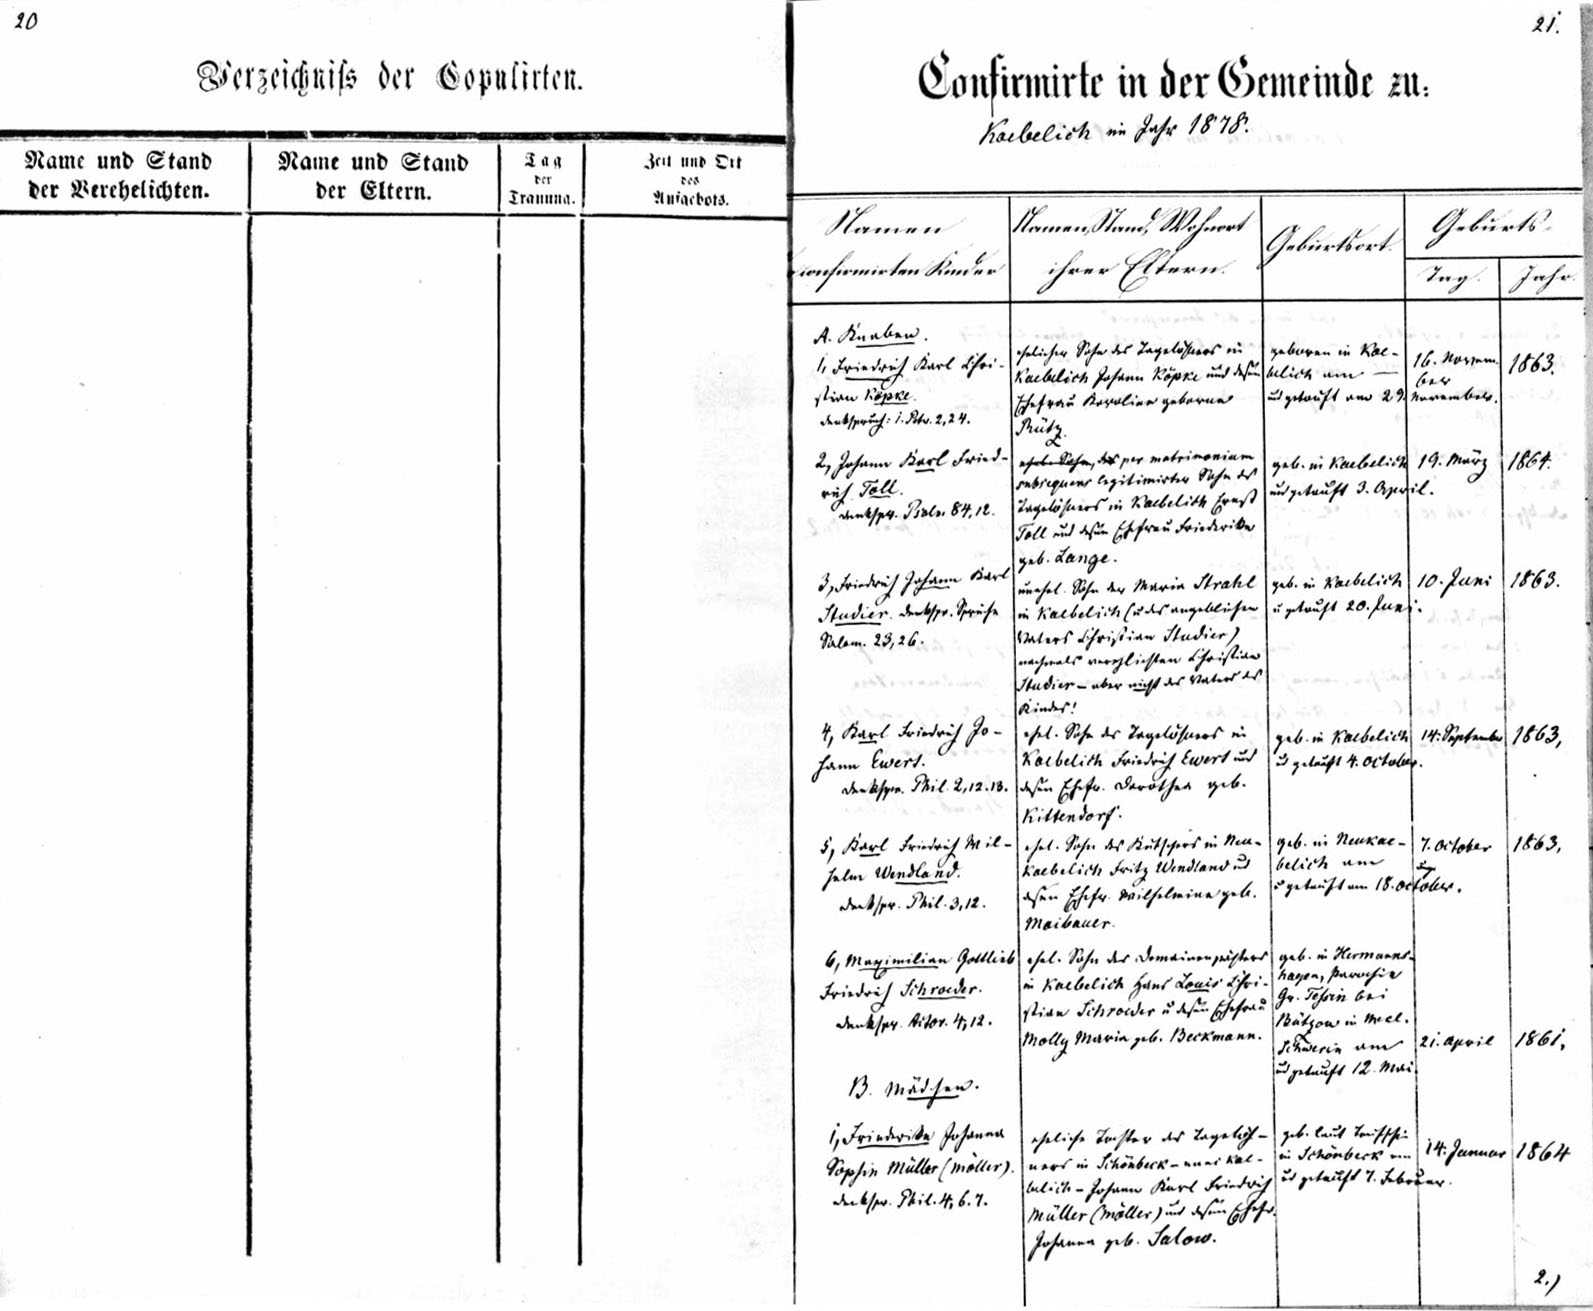 20
Verzeichniſs der Copulirten.
Name und Stand
der Verehelichten.
Name und Stand
der Eltern.
Tag
der
Trauung.
Zeit und Ort
des
Aufgebots.
21.
Confirmirte in der Gemeinde zu:
Kaebelich im Jahr 1878.
Namen
confirmirten Kinder
Namen, Stand, Wohnort
ihrer Eltern.
Geburtsort.
Geburts-
Tag.
Jahr.
A. Knaben.
1, Friedrich Karl Chri-
stian Köpke.
denkspruch: 1. Petr. 2, 24.
ehelicher Sohn des Tagelöhners in
Kaebelich Johann Köpke und dessen
Ehefrau Karoline geborne
Rütz.
geboren in Kae-
belich am —
und getauft am 29. November.
16. Novem-
ber
1863.
2, Johann Karl Fried-
rich Toll.
denkspr. Psalm 84, 12.
ehel. Sohn, des per matrimonium
subsequens legitimirter Sohn des
Tagelöhners in Kaebelich Ernst
Toll und dessen Ehefrau Friederike
geb. Lange.
geb. in Kaebelich
und getauft 3. April.
19. März
1864.
3, Friedrich Johann Karl
Studier. denkspr. Sprüche
Salom. 23, 26.
unehel. Sohn der Maria Strahl
in Kaebelich (u des angeblichen
Vaters Christian Studier)
nachmals verehlichten Christian
Studier – aber nicht des Vaters des
Kindes!
geb. in Kaebelich
u getauft 20. Juni.
10. Juni
1863.
4, Karl Friedrich Jo-
hann Ewert.
denkspr. Phil. 2, 12. 13.
ehel. Sohn des Tagelöhners in
Kaebelich Friedrich Ewert und
dessen Ehefr. Dorothea geb.
Kittendorf.
geb. in Kaebelich
ud getauft 4. October.
14. September
1863,
5, Karl Friedrich Wil-
helm Wendland.
denkspr. Phil. 3, 12.
ehel. Sohn des Kutschers in Neu-
kaebelich Fritz Wendland ud
dessen Ehefr. Wilhelmine geb.
Maibauer.
geb. in Neukae-
belich am
u getauft am 18. October.
7. October
1863,
6, Maximilian Gottlieb
Friedrich Schroeder.
denkspr. 4, 12.
ehel. Sohn des Domainenpächters
in Kaebelich Hans Louis Chri-
stian Schroeder u dessen Ehefrau
Molly Maria geb. Beckmann.
geb. in Hermanns-
hagen, Parochie
Gr. Tessin bei
Bützow in Mecl.
Schwerin am
ud getauft 12. Mai
21. April
1861,
B. Mädchen.
1, Friederike Johanna
Sophie Müller (Möller).
denkspr. Phil. 4, 6. 7.
eheliche Tochter des Tagelöh-
ners in Schönbeck – Kae-
belich – Johann Karl Friedrich
Müller (Möller) und dessen Ehefr.
Johanna geb. Salow.
geb. laut Taufschein
in Schönbeck am
ud getauft 7. Februar.
14. Januar
1864
2.)